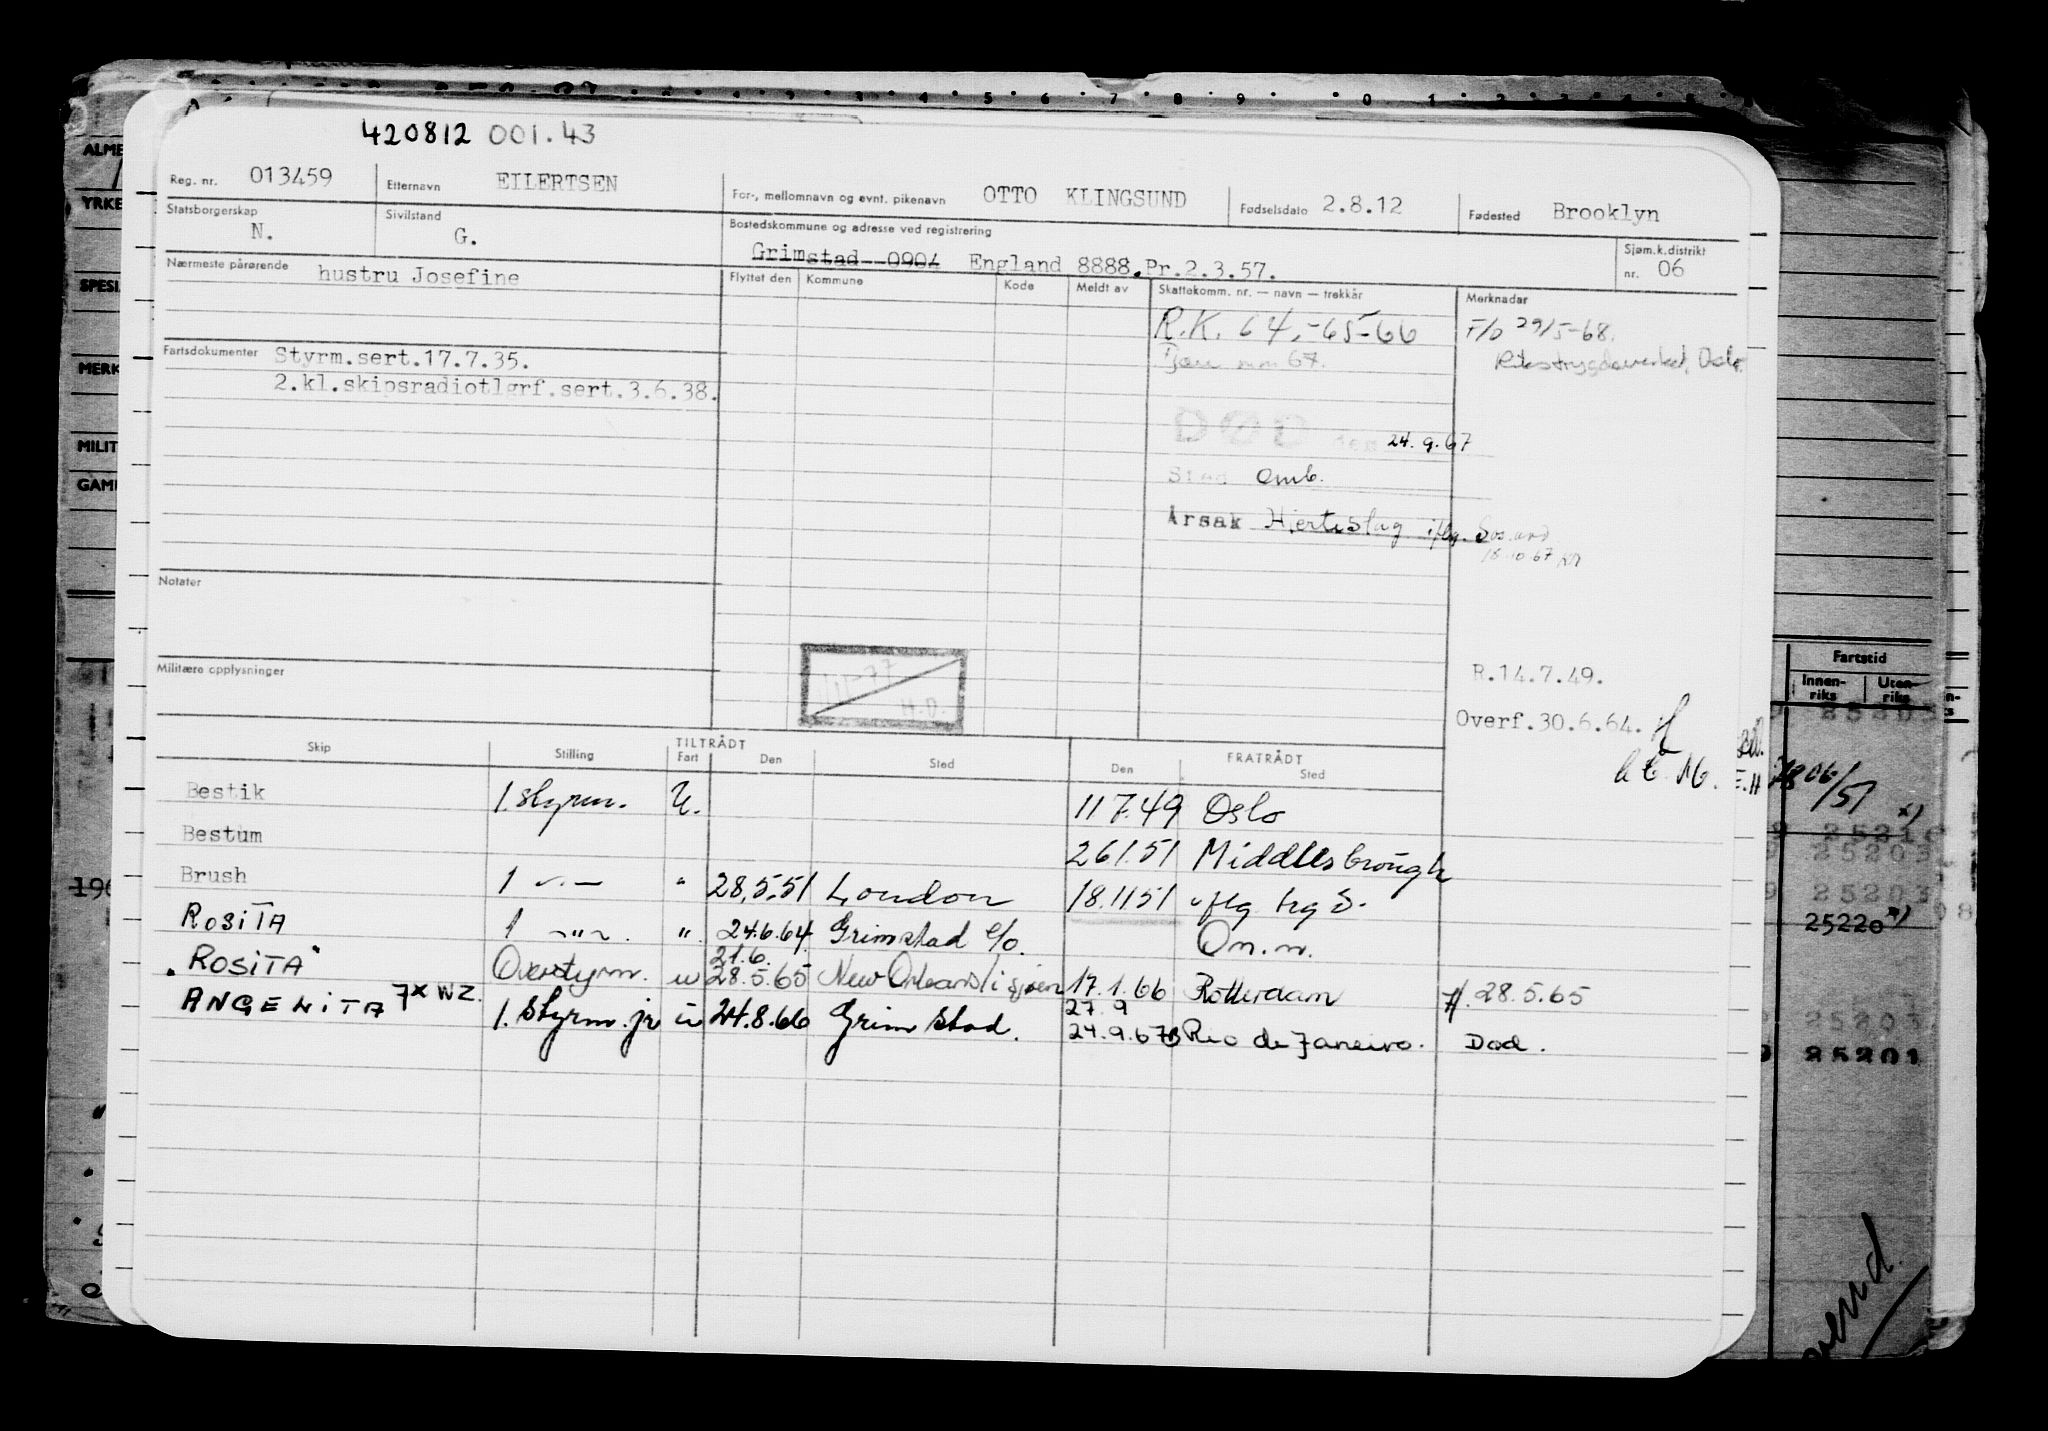 420812 001.43
Reg. nr. 013459 Etternavn EILERTSEN For-, mellomnavn og evnt. pikenavn OTTO KLINGSUND Fødselsdato 2.8.12 Fødested Brooklyn
Statsborgerskap N. Sivilstand G. Bostedskommune og adresse ved registrering Grimstad 0904 England 8888.Pr.2.3.57. Sjøm.k.distrikt nr. 06
Nærmeste pårørende hustru Josefine
Flyttet den Kommune Kode Meldt av Skattekomm. nr. — navn — trekkår Merknader
R.K. 64,-65-66 F/o 29/5-68.
67. Rikstrygdeverket, Oslo.
Fartsdokumenter Styrm.sert.17.7.35.
2.kl.skipsradiotlgrf.sert.3.6.38.
DØD den 24.9.67
Sted omb.
Årsak Hjerteslag iflg.
18.10.67
Notater
Militære opplysninger
III-77
H.D.
R.14.7.49.
Overf.30.6.64.
Skip Stilling TILTRÅDT Fart Den Sted FRATRÅDT Den Sted
Bestik 1.styrm. U. 11 7.49 Oslo
Bestum 26 1.51 Middlesbrough
Brush 1 " 28.5.51 London 18.11 51
ROSITA 1 " ". 24.6.64 Grimstad On.m.
21.6.
"ROSITA" Overstyrm. u 28.5.65 New Orleans/i sjøen 17.1.66 Rotterdam 28.5.65
27.9
ANGELITA 7X WZ. 1. Styrm. jr u 24.8.66 Grimstad. 24.9.67 Rio de Janeiro. Død.
ALME
YRKE
SPESI
MERK
MILIT
GAM
190
Fartstid
Innen-riks Uten-riks
06/51
25203
25220 x)
25203
25201